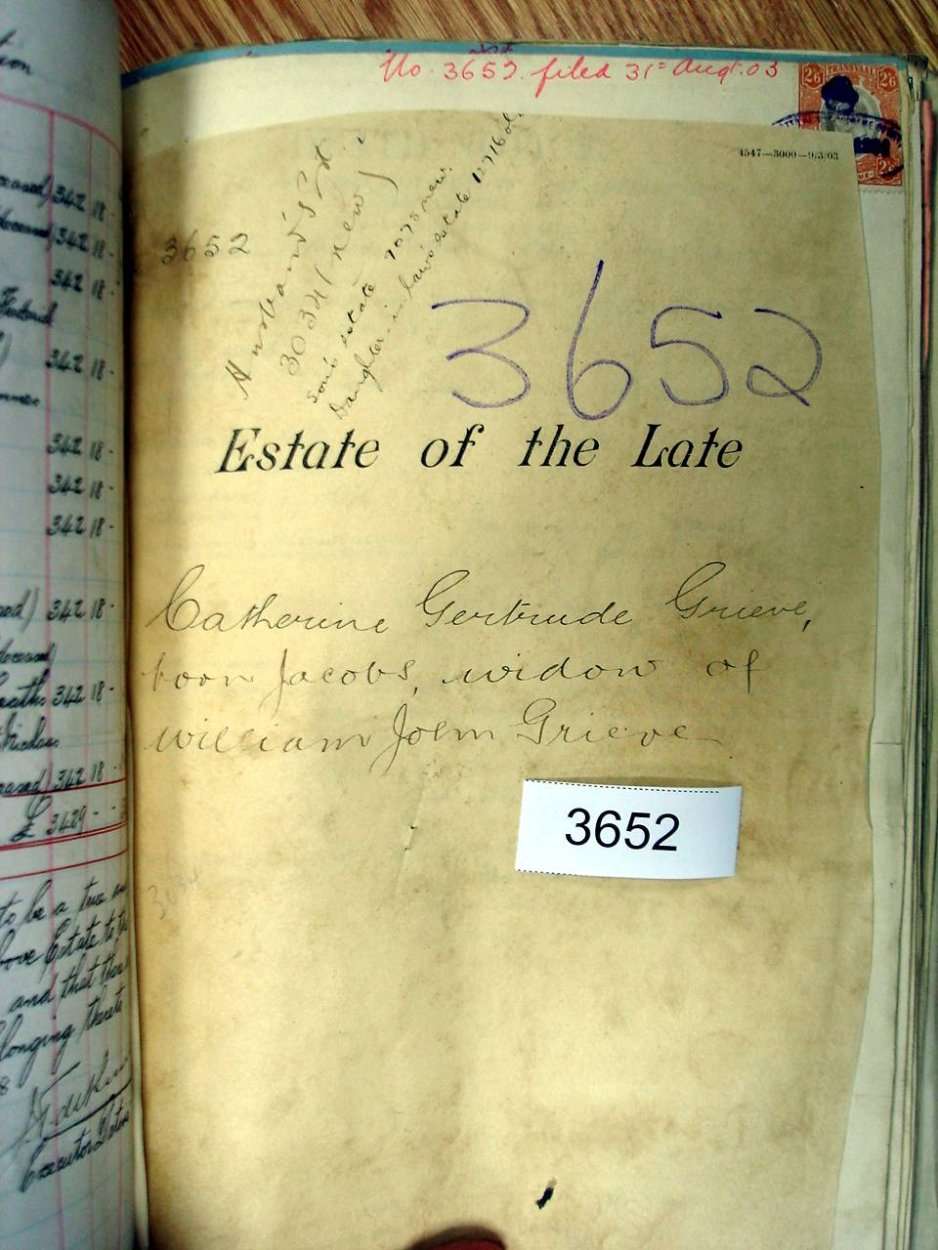 No. 3652. filed 31st Augt. 03
2/6 TRANSVAAL 2/6
4547—3000—9/3/03
3652
Husband's Est.
30341 new
son's estate 7075 new.
Daughter in law's estate 12716 old.
3652
Estate of the Late
Catherine Gertrude Grieve,
born Jacobs, widow of
William John Grieve
3652
342 18 -
342 18 -
342 18 -
342 18 -
342 18 -
342 18 -
342 18 -
342 18 -
342 18 -
342 18 -
£ 3429 - -
to be a true
Estate to the
and that there
longing thereto
Executor Dative